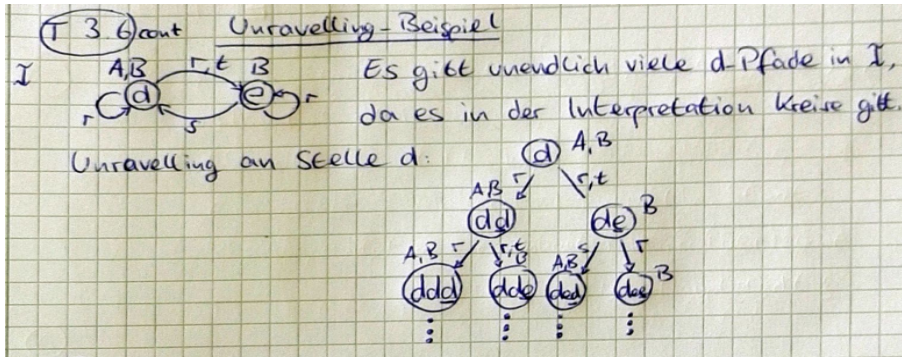 T 3.6 cont Unravelling-Beispiel
I A,B r,t B
d e
r s r
Es gibt unendlich viele d-Pfade in I,
da es in der Interpretation Kreise gibt.
Unravelling an Stelle d:
d A,B
A,B r r,t
dd de B
A,B r r,t B A,B s r
ddd dde ded dee B